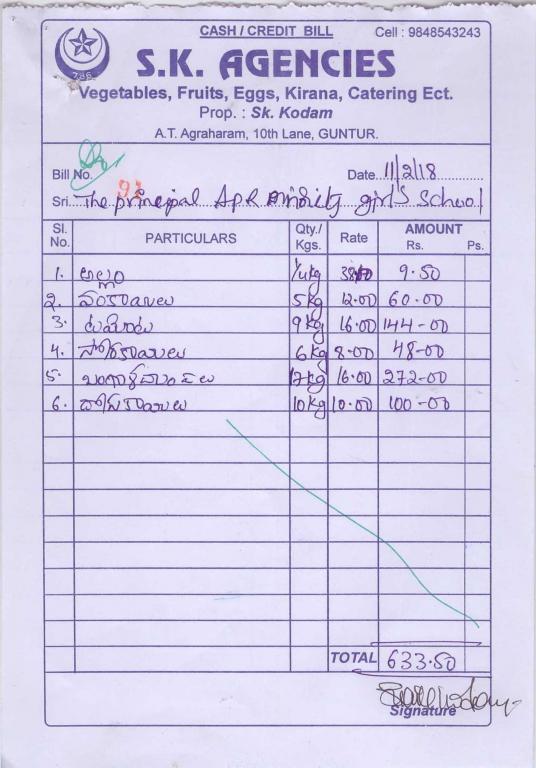 CASH / CREDIT BILL Cell : 9848543243
786
S.K. AGENCIES
Vegetables, Fruits, Eggs, Kirana, Catering Ect.
Prop. : Sk. Kodam
A.T. Agraharam, 10th Lane, GUNTUR.
Bill No. 93 Date 11/2/18
Sri. The principal APR minority girl's School
Sl. No. PARTICULARS Qty./ Kgs. Rate AMOUNT Rs. Ps.
1. అల్లం 1/4kg 38.00 9.50
2. వంకాయలు 5kg 12.00 60.00
3. టమాటు 9kg 16.00 144-00
4. సొరకాయలు 6kg 8.00 48-00
5. బంగాళదుంపలు 17kg 16.00 272-00
6. దోసకాయలు 10kg 10.00 100-00
TOTAL 633.50
Signature